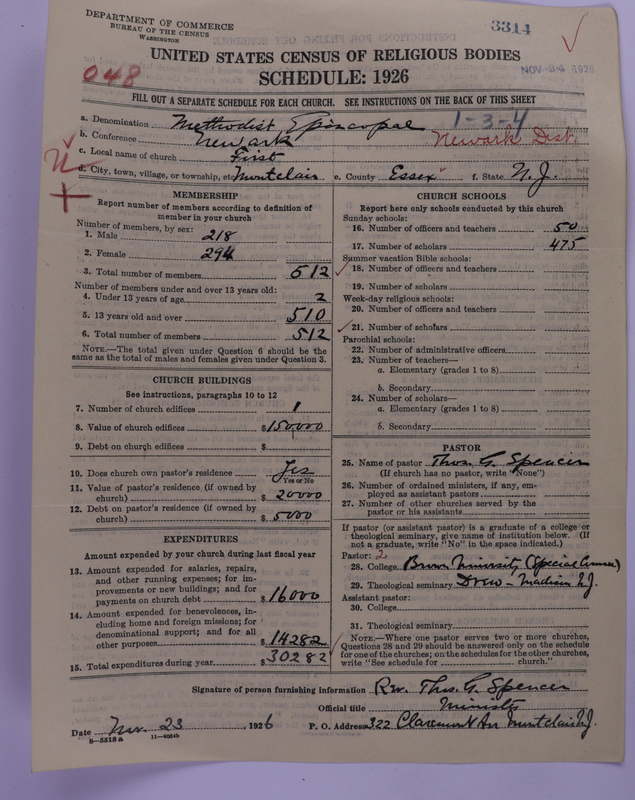 DEPARTMENT OF COMMERCE
BUREAU OF THE CENSUS
WASHINGTON
3314
UNITED STATES CENSUS OF RELIGIOUS BODIES
NOV 24 1926
048
SCHEDULE: 1926
FILL OUT A SEPARATE SCHEDULE FOR EACH CHURCH. SEE INSTRUCTIONS ON THE BACK OF THIS SHEET
1-3-4
a. Denomination Methodist Episcopal
b. Conference Newark Newark Dist.
c. Local name of church First
d. City, town, village, or township, etc. Montclair e. County Essex f. State N. J.
MEMBERSHIP
Report number of members according to definition of
member in your church
Number of members, by sex:
1. Male 218
2. Female 294
3. Total number of members 512
Number of members under and over 13 years old:
4. Under 13 years of age 2
5. 13 years old and over 510
6. Total number of members 512
NOTE.—The total given under Question 6 should be
same as the total of males and females given under Question 3.
CHURCH BUILDINGS
See instructions, paragraphs 10 to 12
7. Number of church edifices 1
8. Value of church edifices $150000
9. Debt on church edifices $
10. Does church own pastor's residence Yes
Yes or No
11. Value of pastor's residence (if owned by
church) $20000
12. Debt on pastor's residence (if owned by
church) $5000
EXPENDITURES
Amount expended by your church during last fiscal year
13. Amount expended for salaries, repairs,
and other running expenses; for im-
provements or new buildings; and for
payments on church debt $16000
14. Amount expended for benevolences, in-
cluding home and foreign missions; for
denominational support; and for all
other purposes $14282
15. Total expenditures during year $30282
CHURCH SCHOOLS
Report here only schools conducted by this church
Sunday schools:
16. Number of officers and teachers 50
17. Number of scholars 475
Summer vacation Bible schools:
18. Number of officers and teachers
19. Number of scholars
Week-day religious schools:
20. Number of officers and teachers
21. Number of scholars
Parochial schools:
22. Number of administrative officers
23. Number of teachers—
a. Elementary (grades 1 to 8)
b. Secondary
24. Number of scholars—
a. Elementary (grades 1 to 8)
b. Secondary
PASTOR
25. Name of pastor Thos. G. Spencer
(If church has no pastor, write "None")
26. Number of ordained ministers, if any, em-
ployed as assistant pastors
27. Number of other churches served by the
pastor or his assistants
If pastor (or assistant pastor) is a graduate of a college or
theological seminary, give name of institution below. (If
not a graduate, write "No" in the space indicated.)
Pastor: 2
28. College Brown University (Special Course)
29. Theological seminary Drew - Madison N.J.
Assistant pastor:
30. College
31. Theological seminary
NOTE.—Where one pastor serves two or more churches,
Questions 28 and 29 should be answered only on the schedule
for one of the churches; on the schedules for the other churches,
write "See schedule for church."
Signature of person furnishing information Rev. Thos. G. Spencer
Official title Minister
Date Nov. 23, 1926 P. O. Address 322 Claremont Ave Montclair N.J.
8-5518a 11-9554b